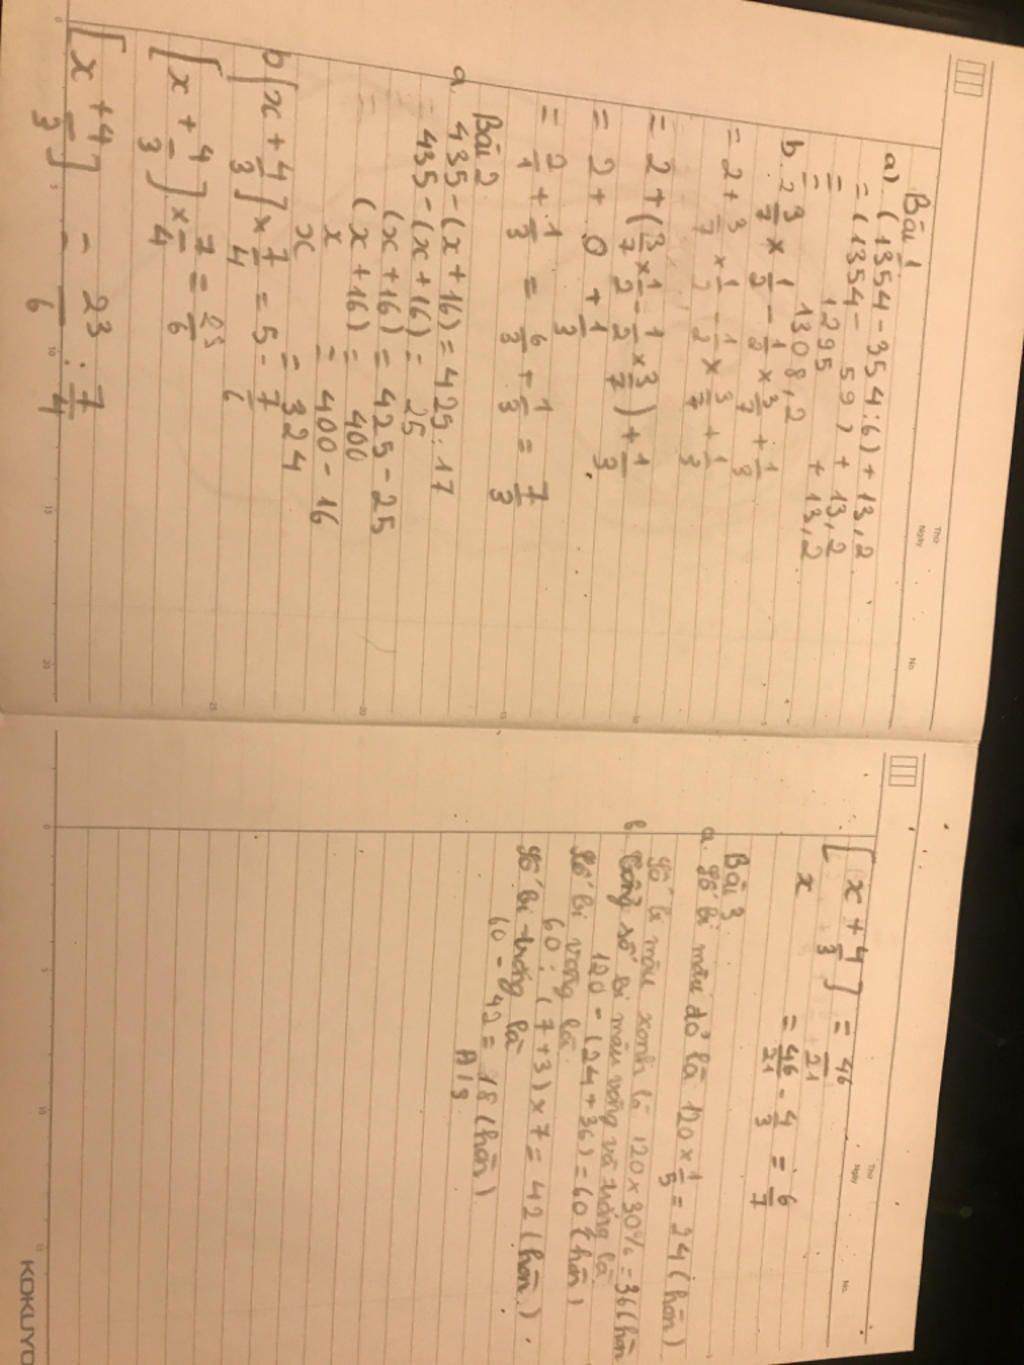 Thứ
Ngày
No
Bài 1
a) (1354 - 354 : 6) + 13,2
= (1354 - 59) + 13,2
= 1295 + 13,2
= 1308,2
b. 2 3/7 × 1/2 - 1/2 × 3/7 + 1/3
= 2 + 3/7 × 1/2 - 1/2 × 3/7 + 1/3
= 2 + (3/7 × 1/2 - 1/2 × 3/7) + 1/3
= 2 + 0 + 1/3
= 2/1 + 1/3 = 6/3 + 1/3 = 7/3
Bài 2
a. 435 - (x + 16) = 425 : 17
435 - (x + 16) = 25
(x + 16) = 425 - 25
(x + 16) = 400
x = 400 - 16
x = 324
b [x + 4/3] × 7/4 = 5 - 7/6
[x + 4/3] × 7/4 = 23/6
[x + 4/3] = 23/6 : 7/4
Thứ
Ngày
No
[x + 4/3] = 46/21
x = 46/21 - 4/3 = 6/7
Bài 3
a. Số bi màu đỏ là 120 × 1/5 = 24 (hòn)
Số bi màu xanh là 120 × 30% = 36 (hòn
b. Tổng số bi màu vàng và trắng là
120 - (24 + 36) = 60 (hòn)
Số bi vàng là:
60 : (7 + 3) × 7 = 42 (hòn).
Số bi trắng là
60 - 42 = 18 (hòn)
Đ/S
KOKUYO